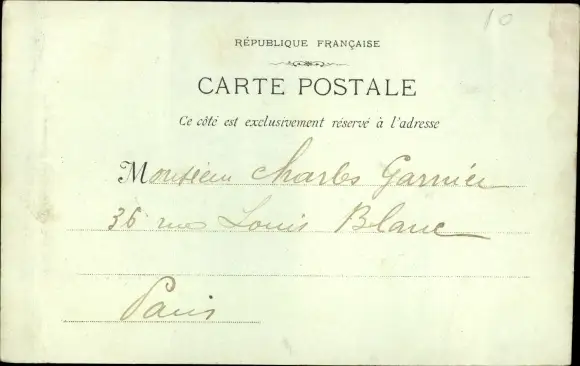 10
RÉPUBLIQUE FRANÇAISE
CARTE POSTALE
Ce côté est exclusivement réservé à l'adresse
Monsieur Charles Garnier
36 rue Louis Blanc
Paris